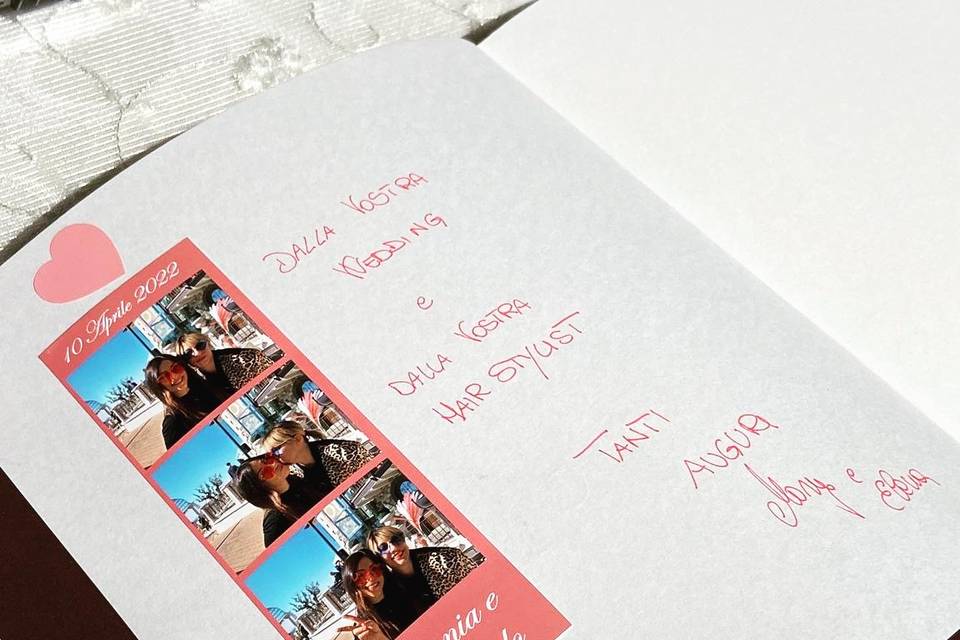 10 Aprile 2022
DALLA VOSTRA
WEDDING
e
DALLA VOSTRA
HAIR STYLIST
TANTI
AUGURI
e